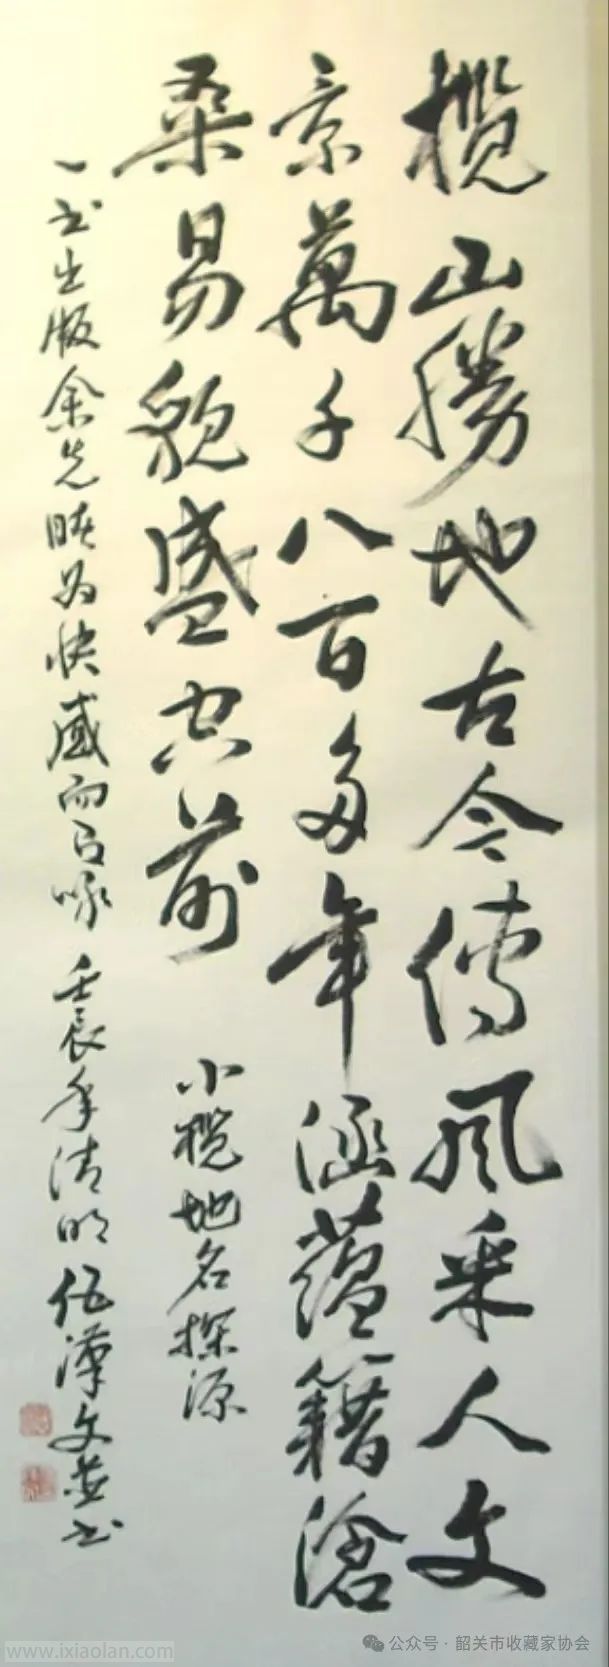 榄山勝地古今傳風采人文
景萬千八百多年涵蘊籍滄
桑易貌盛空前
小榄地名探源
一书出版余先睹为快感而口咏壬辰年清明伍漢文並书
www.ixiaolan.com
公众号·韶关市收藏家协会